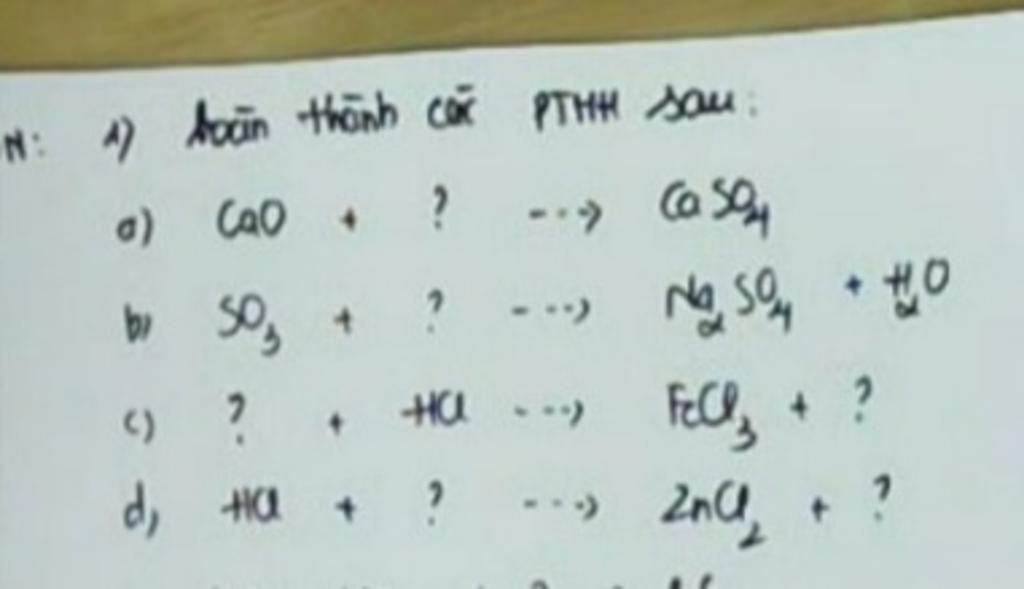 N: 1) hoàn thành các PTHH sau:
a) CaO + ? ---> CaSO4
b) SO3 + ? ---> Na2SO4 + H2O
c) ? + HCl ---> FeCl3 + ?
d, HCl + ? ---> ZnCl2 + ?